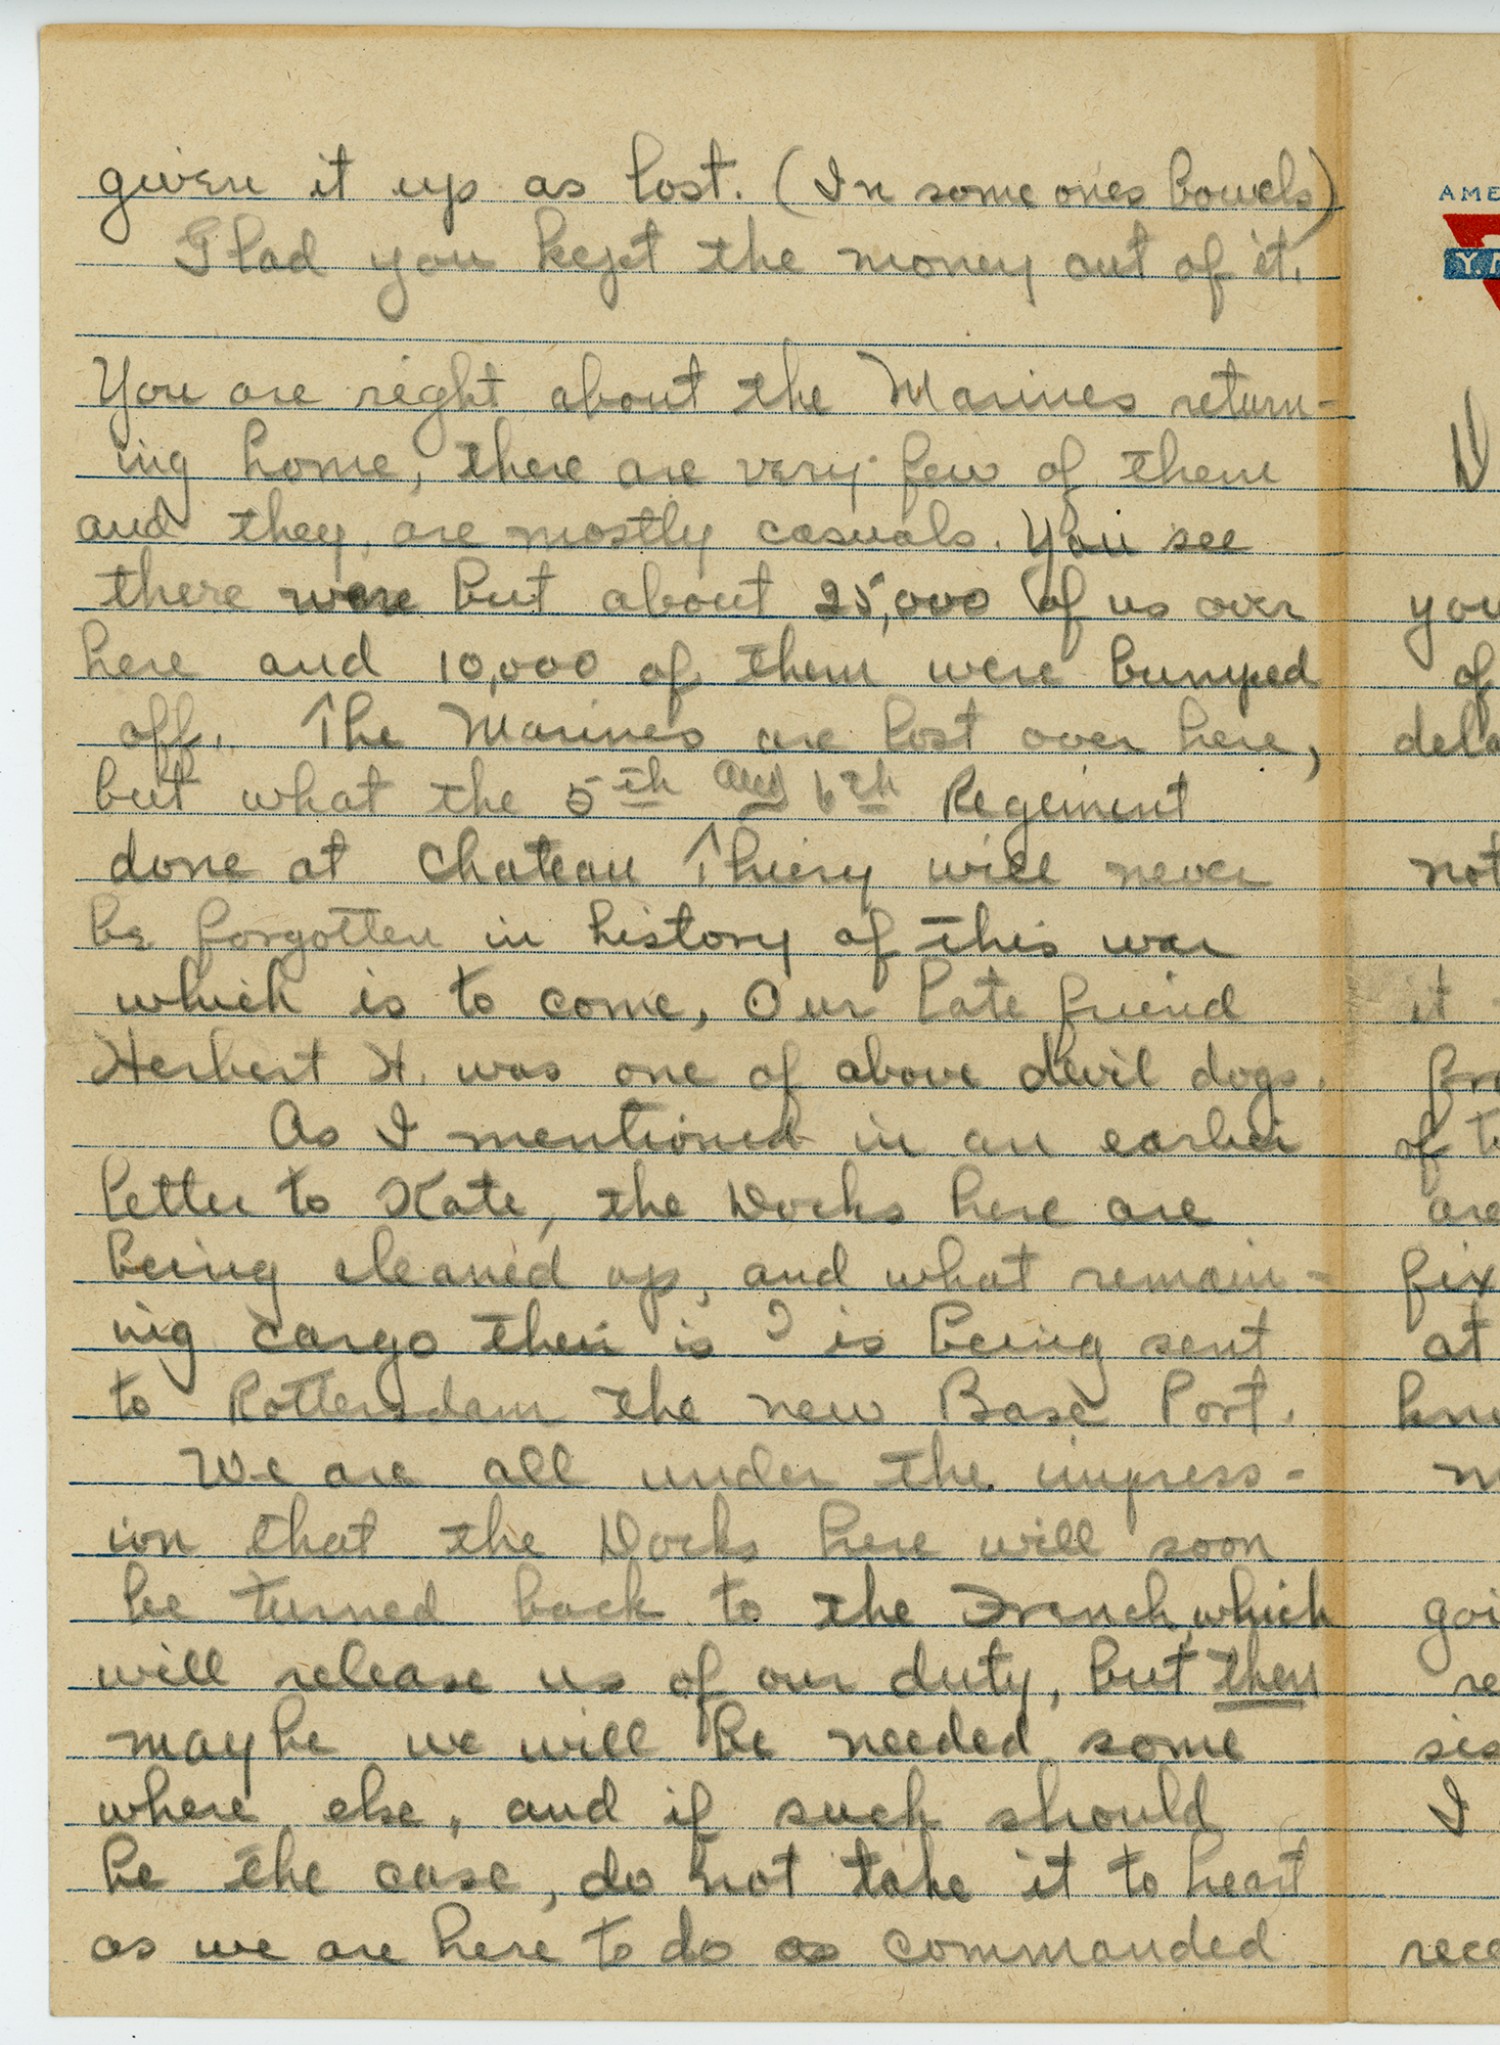 given it up as lost. (In some ones bowels)
Glad you kept the money out of it.
You are right about the Marines return-
ing home, there are very few of them
and they are mostly casuals. You see
there were but about 25,000 of us over
here and 10,000 of them were bumped
off. The Marines are lost over here,
but what the 5th and 6th Regiment
done at Chateau Thiery will never
be forgotten in history of this war
which is to come, Our late friend
Herbert H. was one of above devil dogs.
As I mentioned in an earlier
letter to Kate, the Docks here are
being cleaned up, and what remain-
ing cargo their is? is being sent
to Rottersdam the new Base Port.
We are all under the impress-
ion that the Docks here will soon
be turned back to the French, which
will release us of our duty, but then
maybe we will be needed some
where else, and if such should
be the case, do not take it to heart
as we are here to do as commanded
AME
Y.M
you
of
dela
not
it
fro
of t
are
fix
at
kno
m
goi
re
sis
I
rece